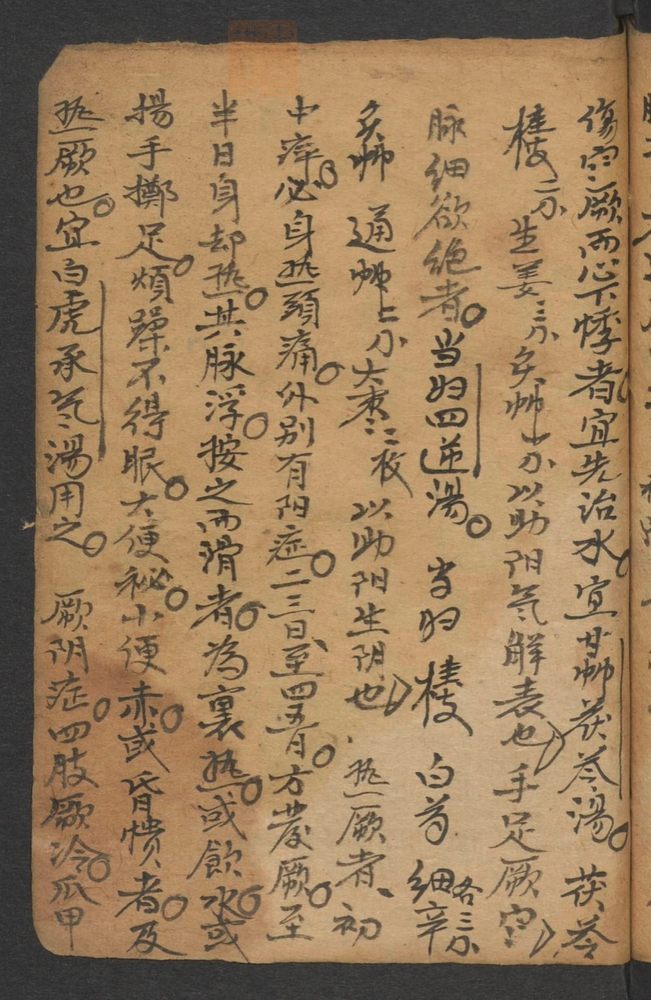 傷寒厥而心下悸者宜先治水宜甘艸茯苓湯。茯苓
桂枝二分生姜三分炙艸一分以助阳氣解表也手足厥寒
脉细欲绝者。当归四逆湯。当归 桂枝 白芍 细辛各三分
炙艸 通艸二分大枣三枚 以助阳生阴也 热厥者初
中瘁。必身热頭痛。外别有阳症。二三日至四五日。方發厥。至
半日身却热。其脉浮。按之而滑者。為裏热。或飲水。或
揚手擲足。煩躁不得眠。大便秘。小便赤。或昏愦者。及
热厥也。宜白虎承氣湯用之。 厥阴症。四肢厥冷。爪甲